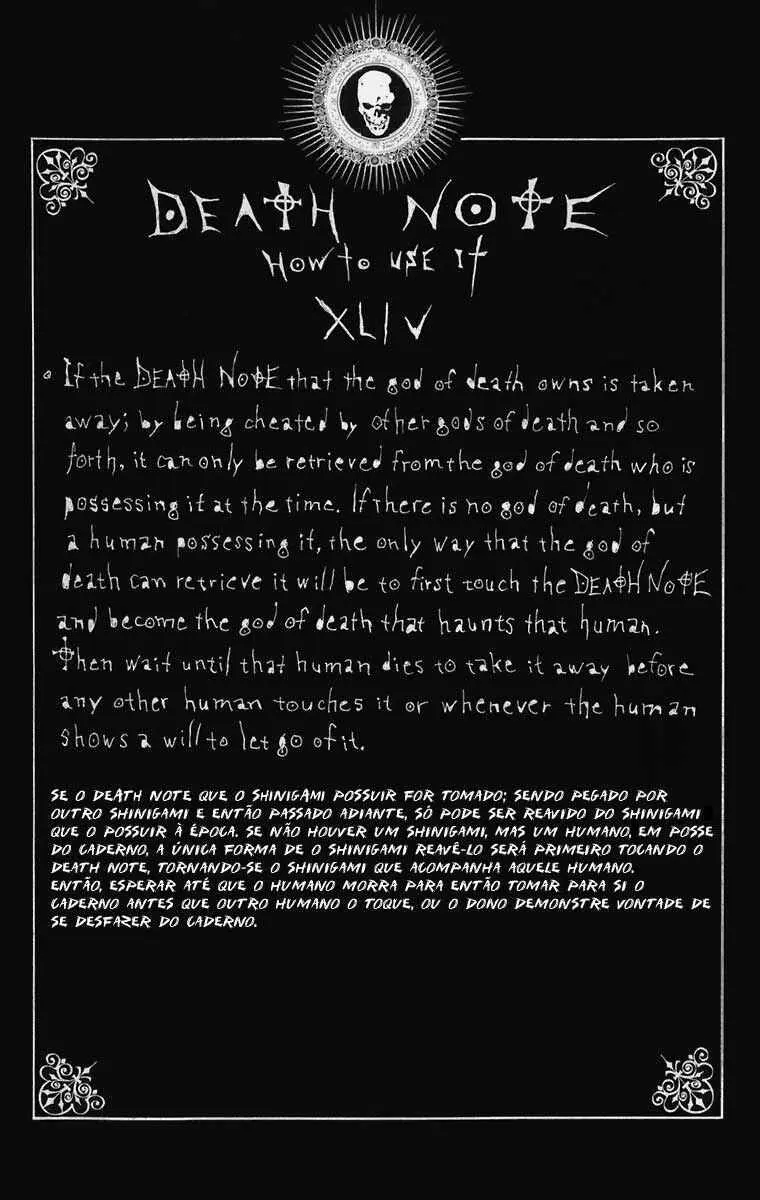 DEATH NOTE
HOW to USE It
XLIV
If the DEATH NOTE that the god of death owns is taken
away; by being cheated by other gods of death and so
forth, it can only be retrieved from the god of death who is
possessing it at the time. If there is no god of death, but
a human possessing it, the only way that the god of
death can retrieve it will be to first touch the DEATH NOTE
and become the god of death that haunts that human.
Then wait until that human dies to take it away before
any other human touches it or whenever the human
shows a will to let go of it.
SE O DEATH NOTE QUE O SHINIGAMI POSSUIR FOR TOMADO; SENDO PEGADO POR
OUTRO SHINIGAMI E ENTÃO PASSADO ADIANTE, SÓ PODE SER REAVIDO DO SHINIGAMI
QUE O POSSUIR À ÉPOCA. SE NÃO HOUVER UM SHINIGAMI, MAS UM HUMANO, EM POSSE
DO CADERNO, A ÚNICA FORMA DE O SHINIGAMI REAVÊ-LO SERÁ PRIMEIRO TOCANDO O
DEATH NOTE, TORNANDO-SE O SHINIGAMI QUE ACOMPANHA AQUELE HUMANO.
ENTÃO, ESPERAR ATÉ QUE O HUMANO MORRA PARA ENTÃO TOMAR PARA SI O
CADERNO ANTES QUE OUTRO HUMANO O TOQUE, OU O DONO DEMONSTRE VONTADE DE
SE DESFAZER DO CADERNO.